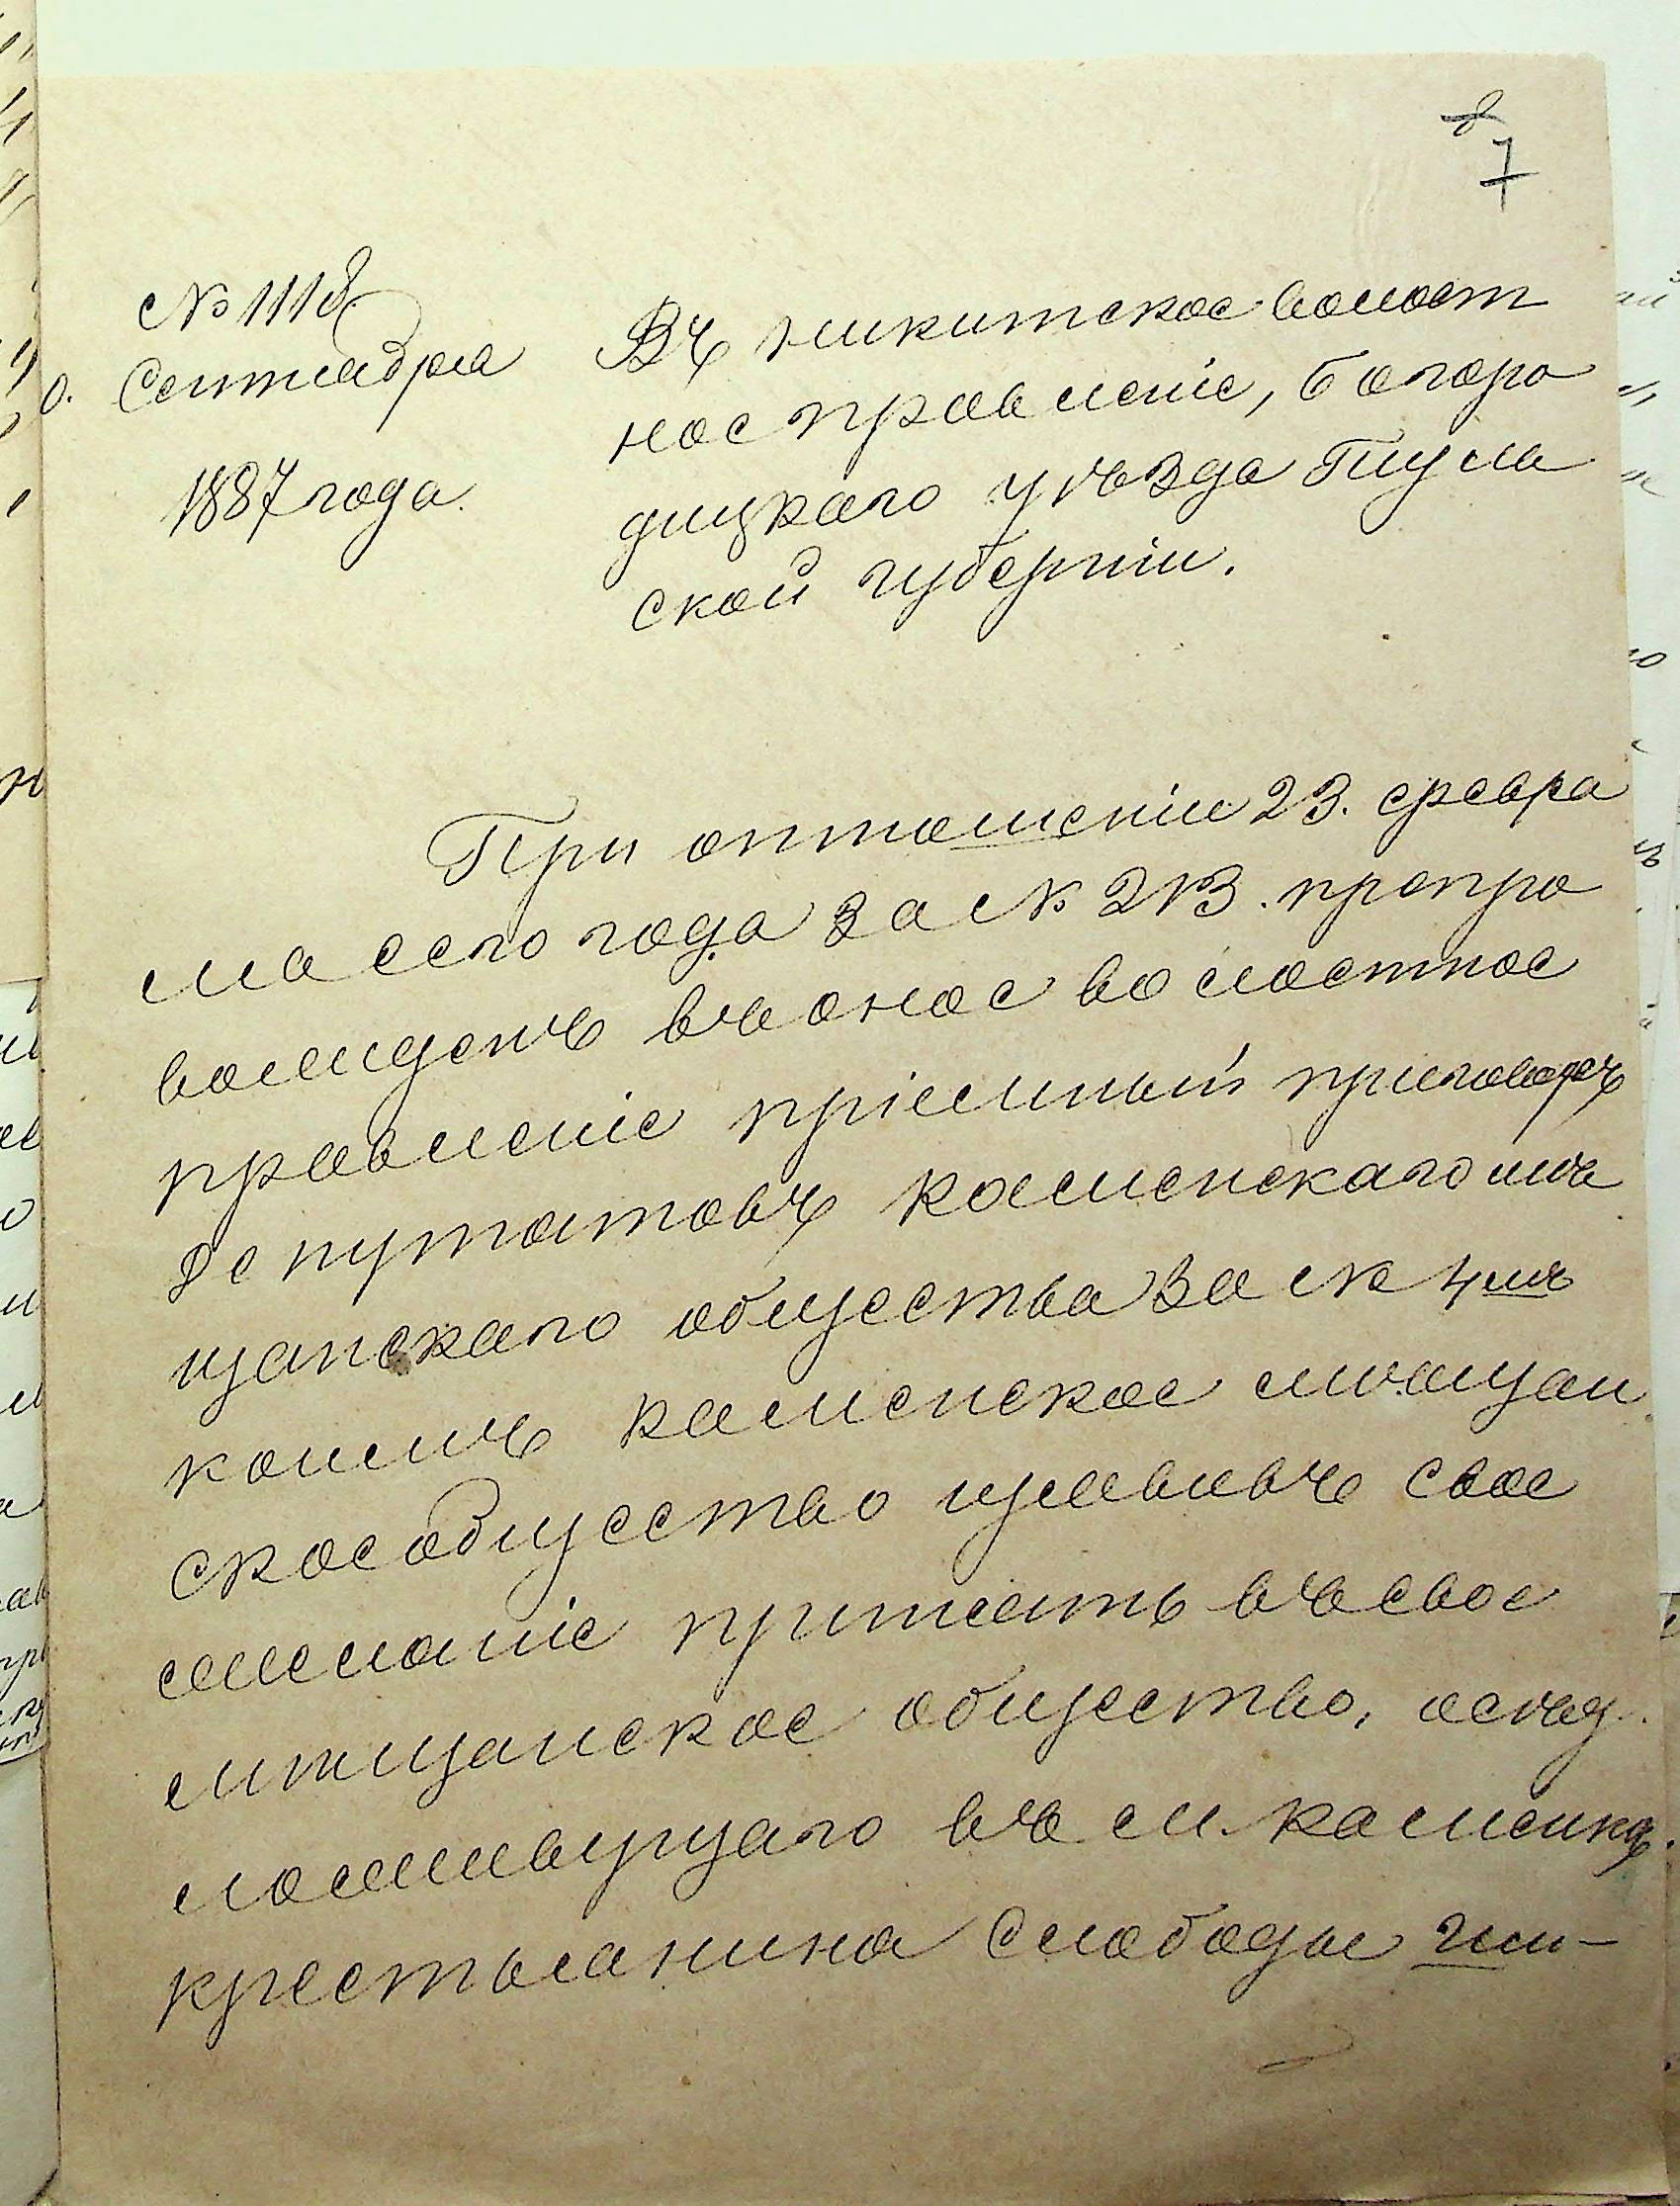 7
№ 1118
0. Сентября
1887 года.
Въ никитское волост
ное правленіе, богоро
дицкаго уѣзда Туль
ской губерніи.
При отношеніи 23. февра
ля сего года за № 213. препро
вожденъ въ оное волостное
правленіе пріемный приговоръ
депутатовъ каменскаго мѣ
щанскаго общества за № 4мъ
коимъ каменское мѣщан
ское общество изъявивъ свое
желаніе принять въ свое
мѣщанское общество,
въ м. каменкѣ.
крестьянина Слободы